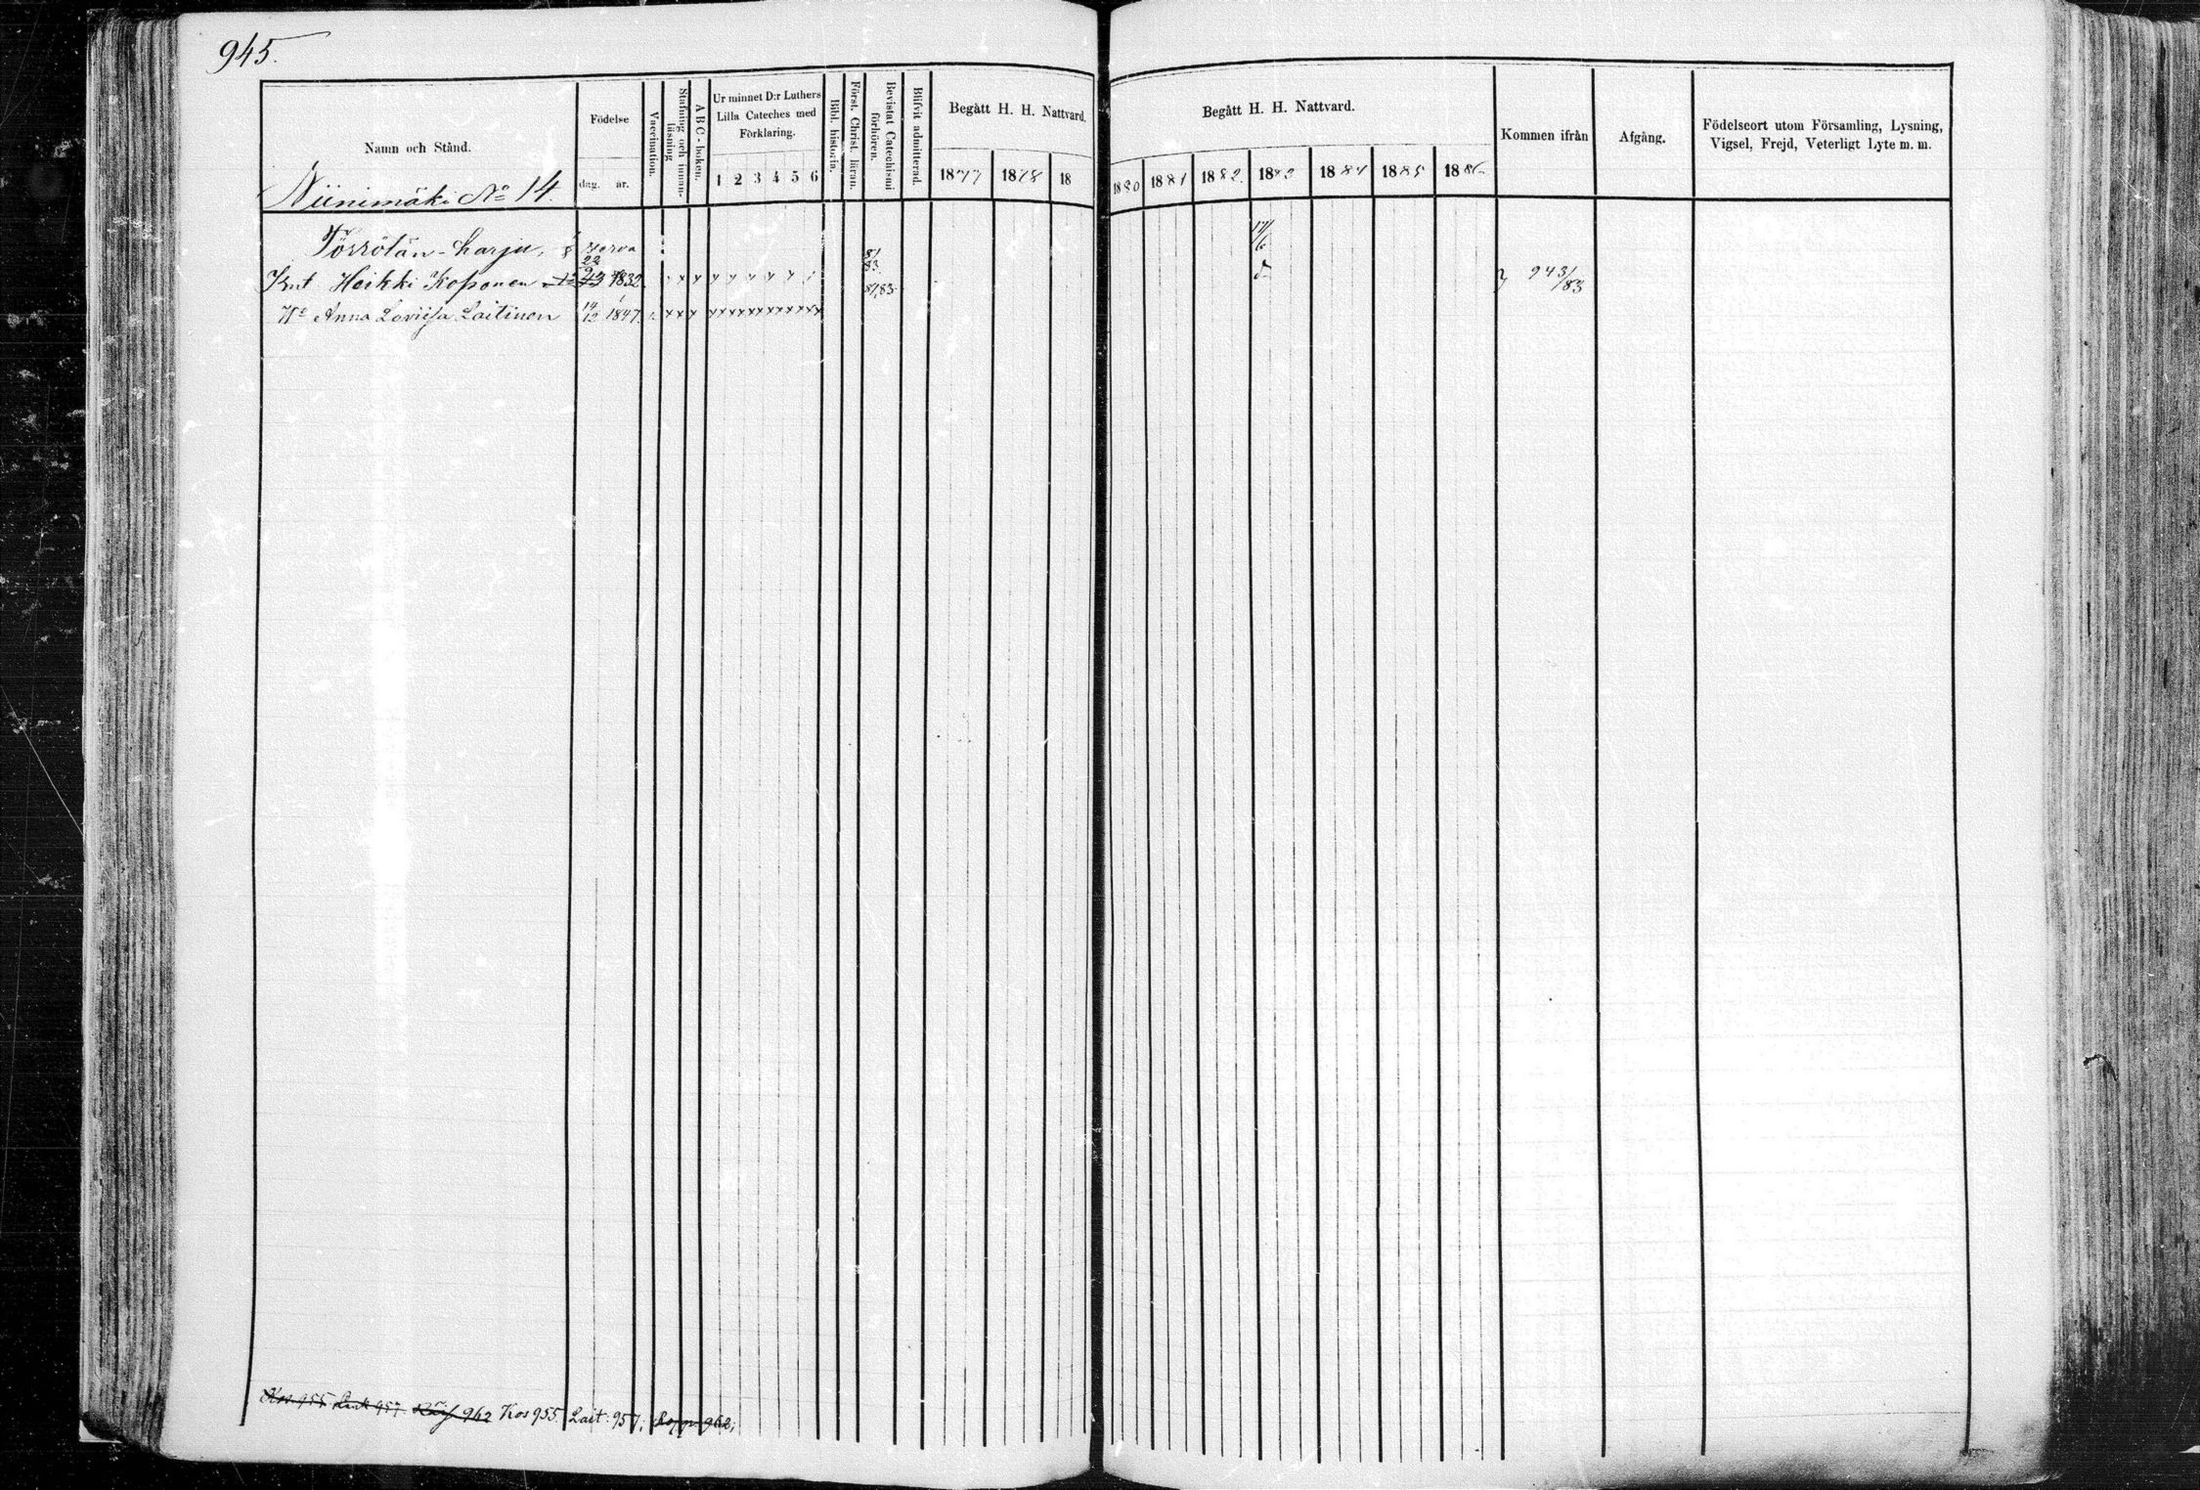 945.
Namn och Stånd.
Födelse
dag. år.
Vaccination.
Stafning och innan-läsning
A B C-boken.
Ur minnet D:r Luthers
Lilla Cateches med
Förklaring.
1 2 3 4 5 6
Bibl. historia.
Först. Christ. läran.
Bevistat Catechismi förhören.
Blifvit admitterad.
Begått H. H. Nattvard.
1877 1878 18
Begått H. H. Nattvard.
1880 1881 1882. 1883 1884 1885 1886
Kommen ifrån
Afgång.
Födelseort utom Församling, Lysning,
Vigsel, Frejd, Veterligt Lyte m. m.
Niinimäki No 14.
Törrölän-harju,
81 83.
17/6
Knt Heikki Koponen 1832. 81,83. 943/83
Hu Anna Loviisa Laitinen 14/12 1847.
Kos 955. Lait. 957;